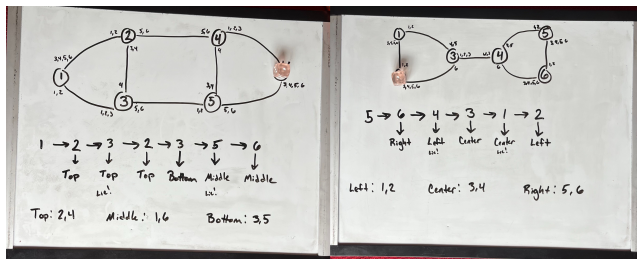 1,2
2
5,6
5,6
4
1,2,3
3,4
4
3,4,5,6
1
1,2
4
3
1,2,3
5,6
5
5,6
1 → 2 → 3 → 2 → 3 → 5 → 6
Top Top Top Bottom Middle Middle
Top: 2,4 Middle: 1,6 Bottom: 3,5
1
1,2
3
4
5
6
5 → 6 → 4 → 3 → 1 → 2
Right Left Center Center Left
Left: 1,2 Center: 3,4 Right: 5,6